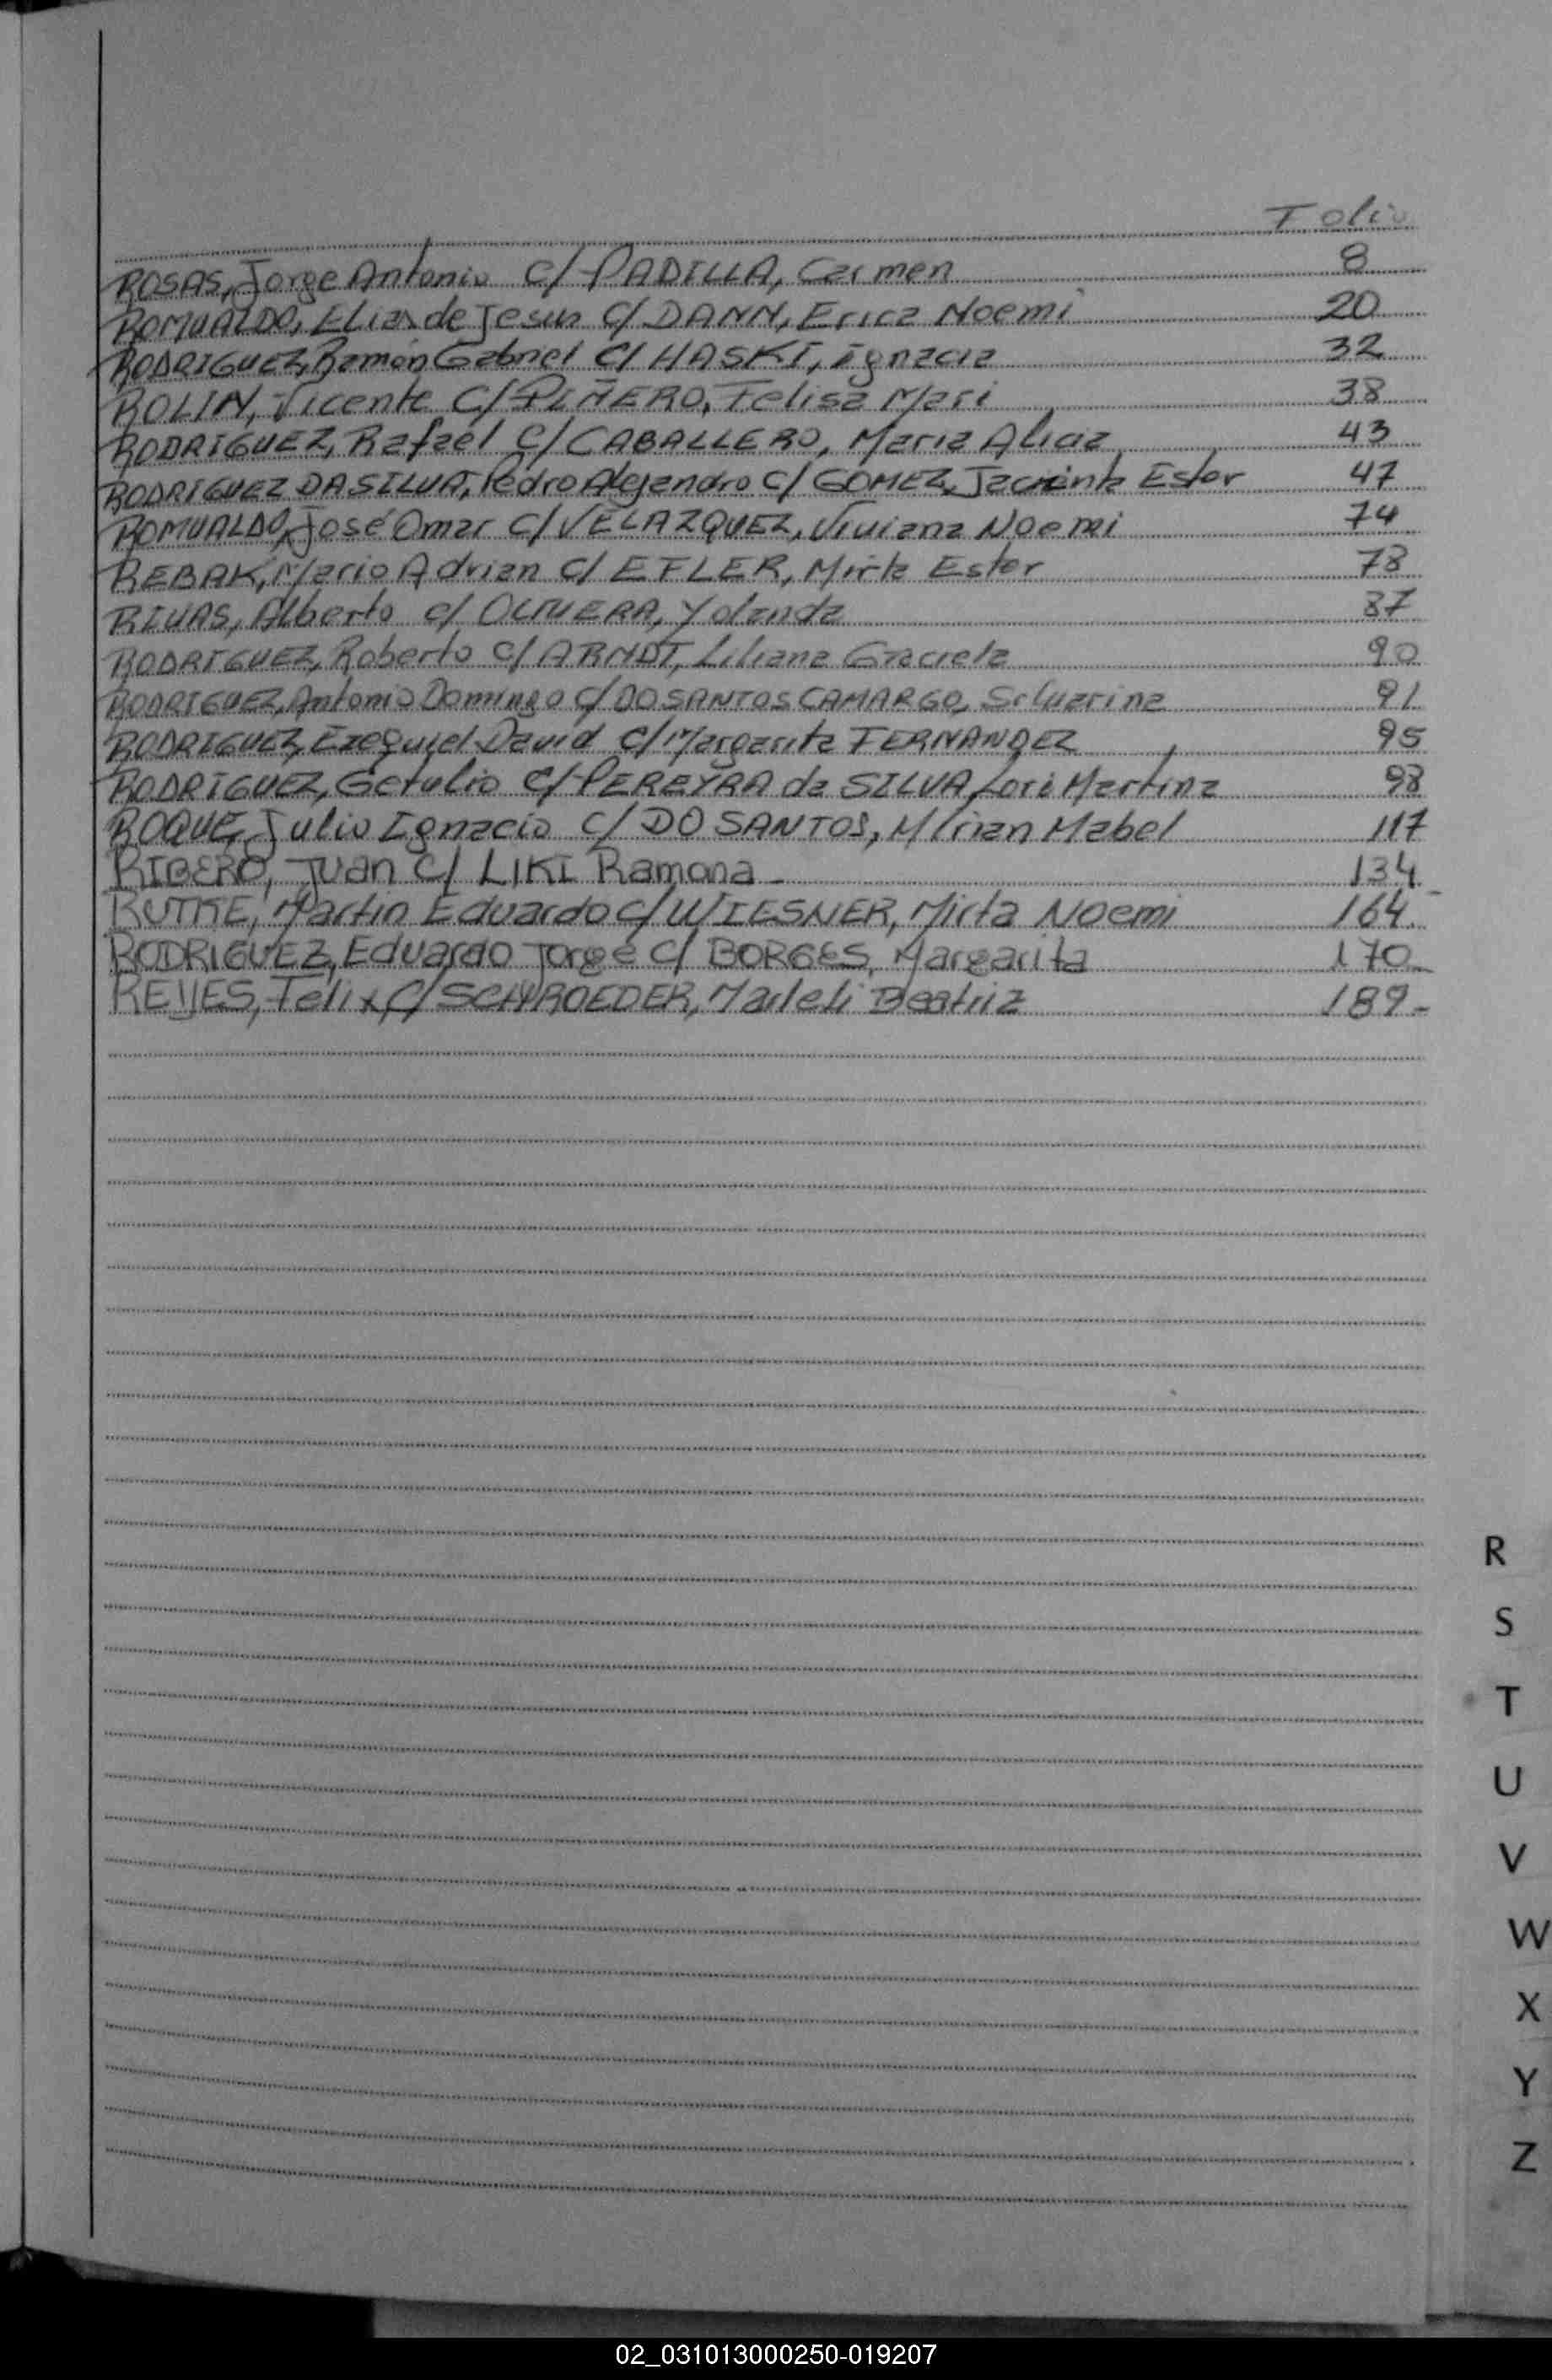 Folio
ROSAS, Jorge Antonio C/ PADILLA, Carmen 8
ROMUALDO, Elias de Jesus C/ DANN, Erica Noemi 20
RODRIGUEZ, Ramón Gabriel C/ HASKI, Ignacia 32
ROLIN, Vicente C/ PIÑERO, Felisa Mari 38
RODRIGUEZ, Rafael C/ CABALLERO, Maria Alicia 43
RODRIGUEZ DASILVA, Pedro Alejandro C/ GOMEZ, Jacinta Ester 47
ROMUALDO, José Omar C/ VELAZQUEZ, Viviana Noemi 74
REBAK, Mario Adrian C/ EFLER, Mirta Ester 78
RIVAS, Alberto c/ OLIVERA, Yolanda 87
RODRIGUEZ, Roberto C/ ARNDT, Liliana Graciela 90
RODRIGUEZ, Antonio Domingo C/ DO SANTOS CAMARGO, 91
RODRIGUEZ, Ezequiel David C/ Margarita FERNANDEZ 95
RODRIGUEZ, Getulio C/ PEREYRA da SILVA Martina 98
ROQUE, Julio Ignacio C/ DO SANTOS, Mirian Mabel 117
RIBERO, Juan C/ LIKI Ramona 134
Martin Eduardo C/ WIESNER, Mirta Noemi 164.
RODRIGUEZ, Eduardo Jorge C/ BORGES, Margarita 170
REYES, Felix C/ SCHROEDER, Marleli Beatriz 189-
R
S
T
U
V
W
X
Y
Z
02_031013000250-019207